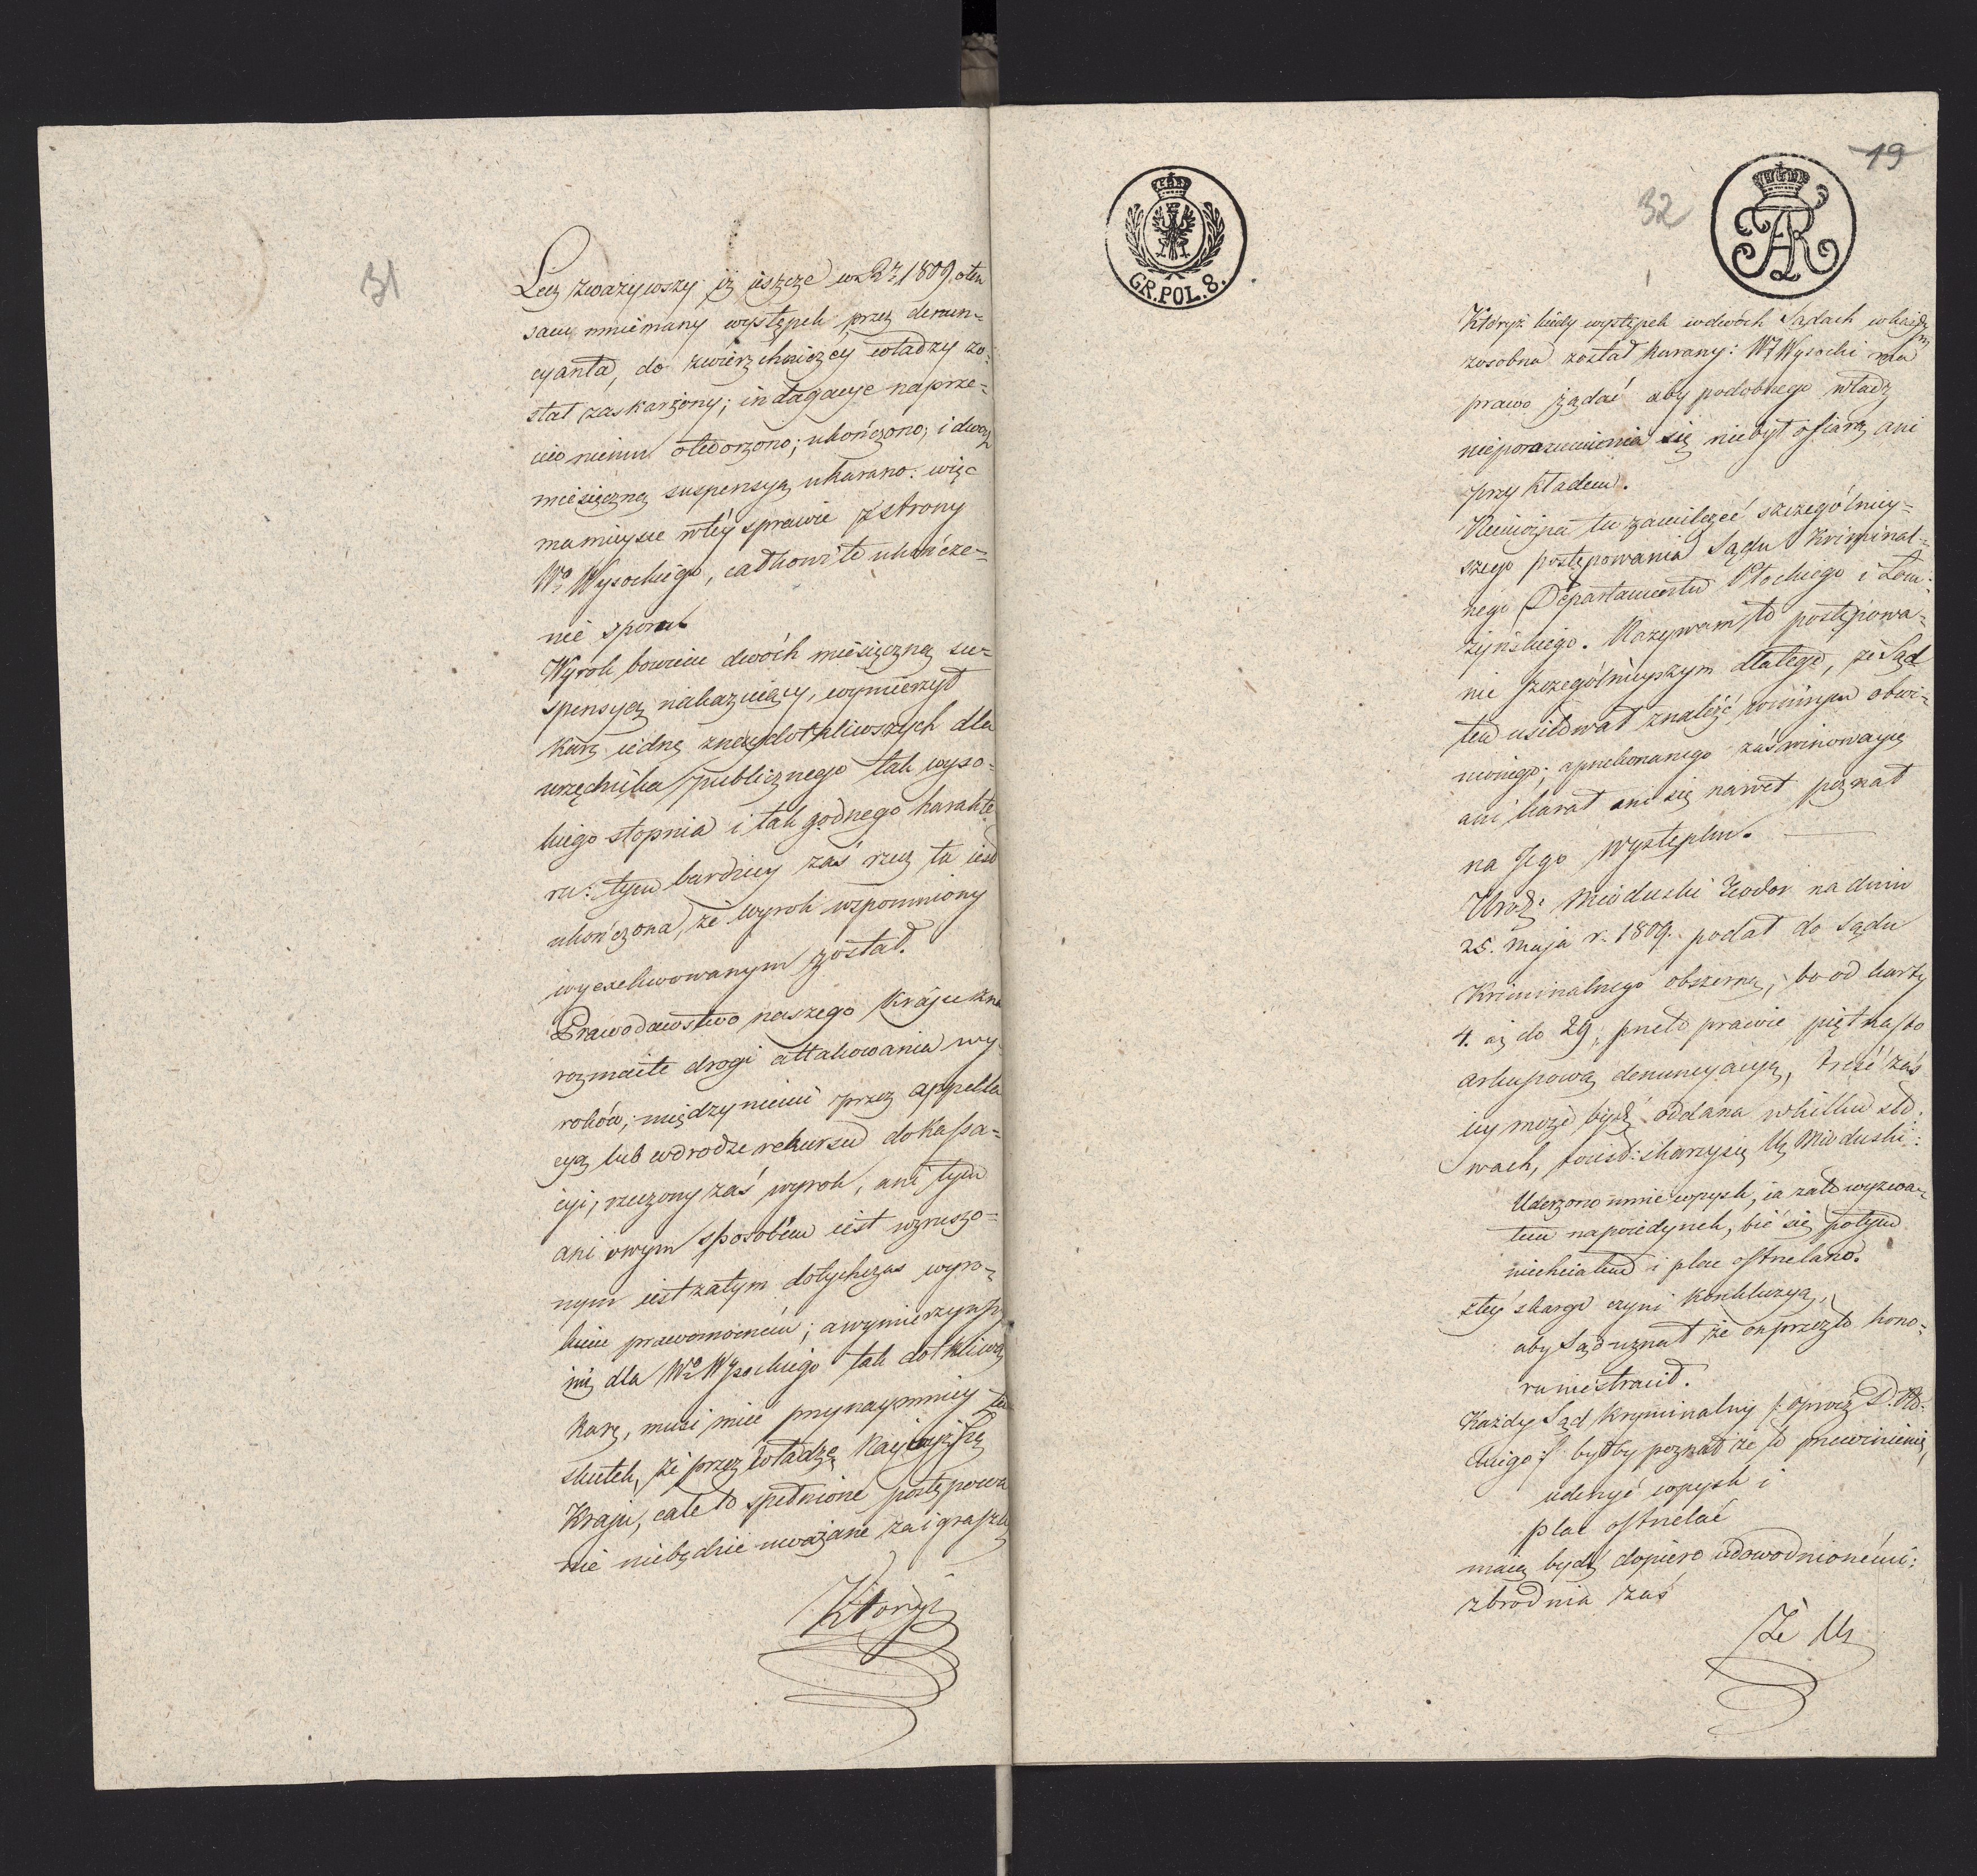 31
Lecz zważywszy iż ieszcze w R<sup>z</sup> 1809. oten
sam mniemany występek przez denun-
cyanta, do zwierzchniczéy władzy zo-
stał zaskarżony; indagacye naprze-
ciw niemu otworzono; ukończono; i dwu
miesięczną suspensyą ukarano: więc
ma mieysce wtéy sprawie z strony
W<sup>o</sup> Wysockiego, całkowite ukończe-
nie sporu.
Wyrok bowiem dwóch miesięczną su-
spensyą nakazuiący, wymierzył
karę iedną znaydotkliwszych dla
urzędnika publicznego tak wyso-
kiego stopnia i tak godnego charakte
ru: tym bardziey zaś rzecz ta iest
ukończona, że wyrok wspomniony
wyexekwowanym został.
Prawodawstwo naszego Kraju zna
rozmaite drogi attakowania wy-
roków; między niemi przez appella
cyą lub wdrodze rekursu do Kassa-
cyi, rzeczony zaś wyrok, ani tym
ani owym sposobem iest wzruszo-
nym iest zatym dotychczas wyro-
kiem prawomocném; a wymierzywszy
nią dla W<sup>o</sup> Wysockiego tak dotkliwą
karę, musi mieć przynaymniey ten
skutek, że przez Władzę Naywyższą
Kraju, całe to spełnione postępowa
nie niebędzie uważane za igraszkę
Któryż
19
32
GR. POL. 8.
AR
Któryż kiedy występek wdwóch Sądach wkażdym
zosobna został karany: W<sup>y</sup> Wysocki ma
prawo żądać aby podobnego władz
nieporozumienia się niebył ofiarą ani
przykładem.
Niemożna tu zamilczeć szczególniey-
szego postępowania Sądu Kriminal-
nego Departamentu Płockiego i Łom-
żyńskiego. Nazywam to postępowa-
nie szczególnieyszym dlatego, że Sąd
ten usiłował znaleźć winnym obwi-
nionego; a przekonanego zaś winowaycę
ani karał ani się nawet poznał
na Jego występku.
Urod: Mioduski Teodor na dniu
25. Maja r. 1809. podał do Sądu
Kriminalnego obszerną, bo od karty
4. aż do 29, przeto prawie piętnasto
arkuszową denuncyacyą, treść zaś
iey może bydź oddana wkilku sło-
wach, towięd: skarży się Ur. Mioduski:
Uderzono mnie wpysk, ia zato wyzwa-
łem napoiedynek, bić się potym
niechciałem i plac ostrzelano.
ztéy skargi czyni konkluzyą,
aby Sąd uznał że on przez to hono-
ru niestracił.
Każdy Sąd kryminalny /: oprócz D. Pło-
ckiego :/ byłby poznał że to przewinienie,
uderzyć wpysk i
plac ostrzelać
maią bydź dopiero udowodnionémi;
zbrodnia zaś
Że Ur